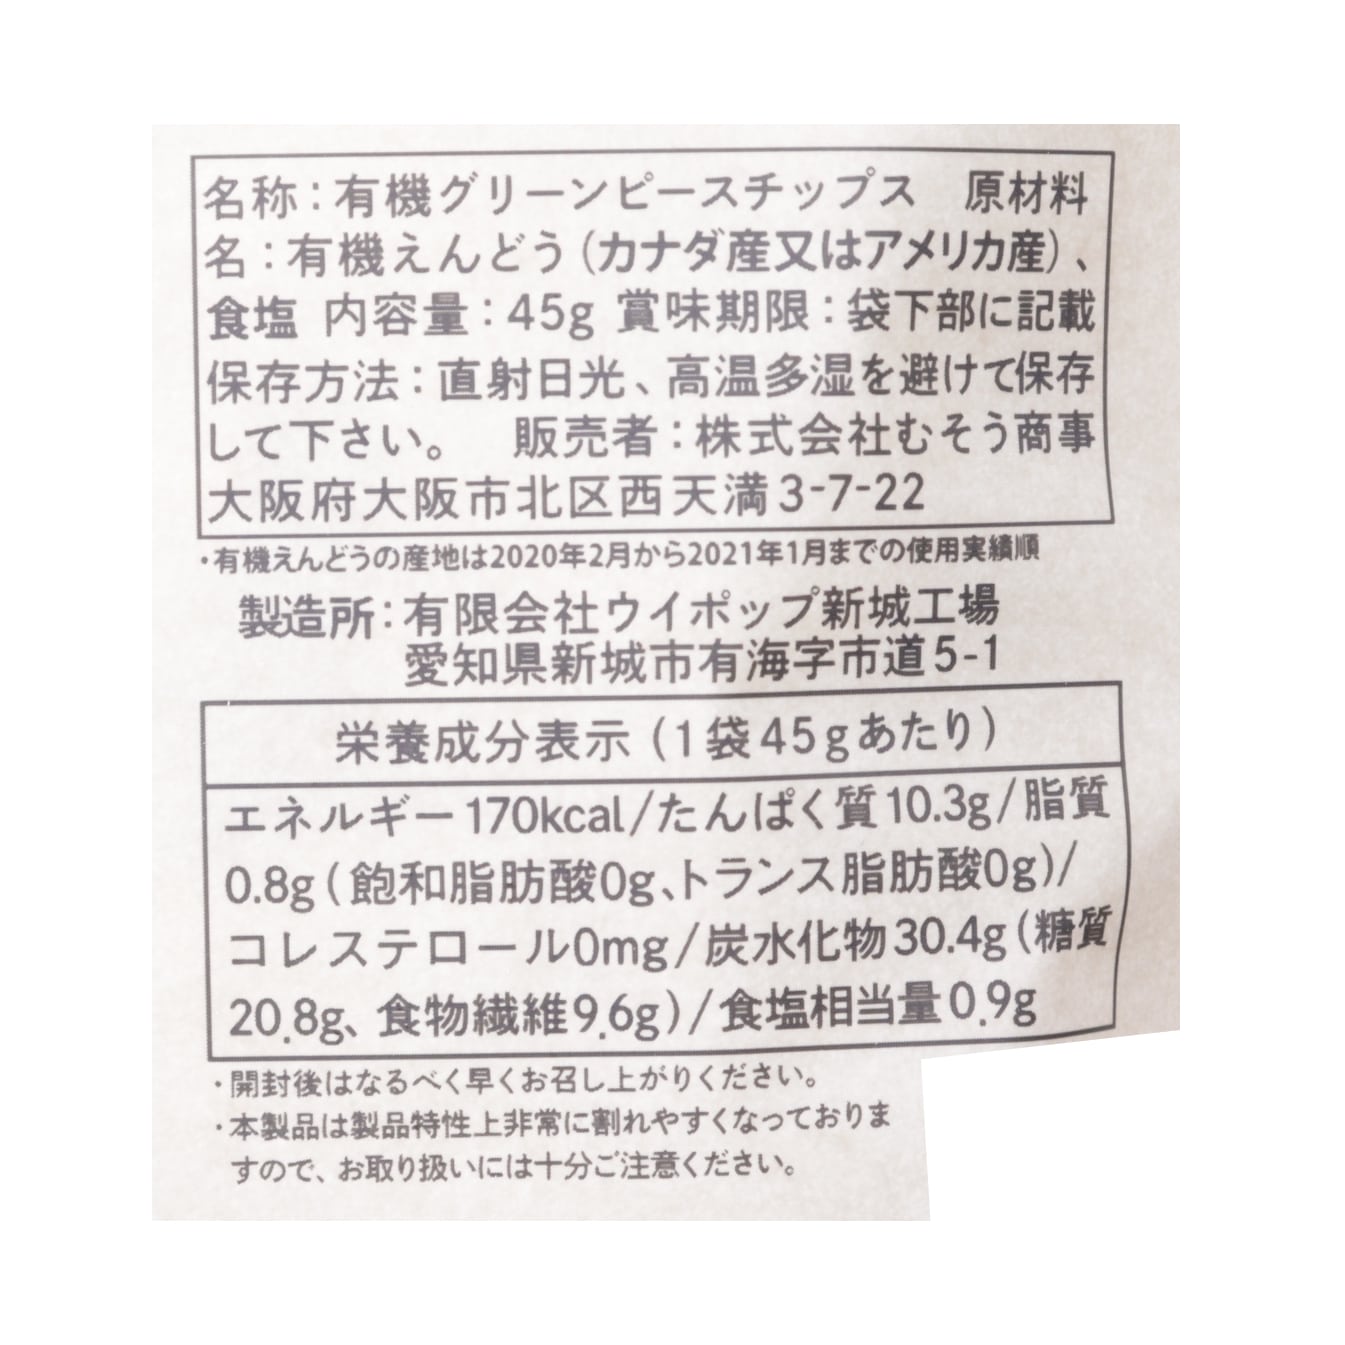 名称：有機グリーンピースチップス　原材料
名：有機えんどう（カナダ産又はアメリカ産）、
食塩 内容量：45g 賞味期限：袋下部に記載
保存方法：直射日光、高温多湿を避けて保存
して下さい。　販売者：株式会社むそう商事
大阪府大阪市北区西天満3-7-22
・有機えんどうの産地は2020年2月から2021年1月までの使用実績順
製造所：有限会社ウイポップ新城工場
愛知県新城市有海字市道5-1
栄養成分表示（1袋45gあたり）
エネルギー170kcal/たんぱく質10.3g/脂質
0.8g（飽和脂肪酸0g、トランス脂肪酸0g)/
コレステロール0mg/炭水化物30.4g（糖質
20.8g、食物繊維9.6g)/食塩相当量0.9g
・開封後はなるべく早くお召し上がりください。
・本製品は製品特性上非常に割れやすくなっておりま
すので、お取り扱いには十分ご注意ください。